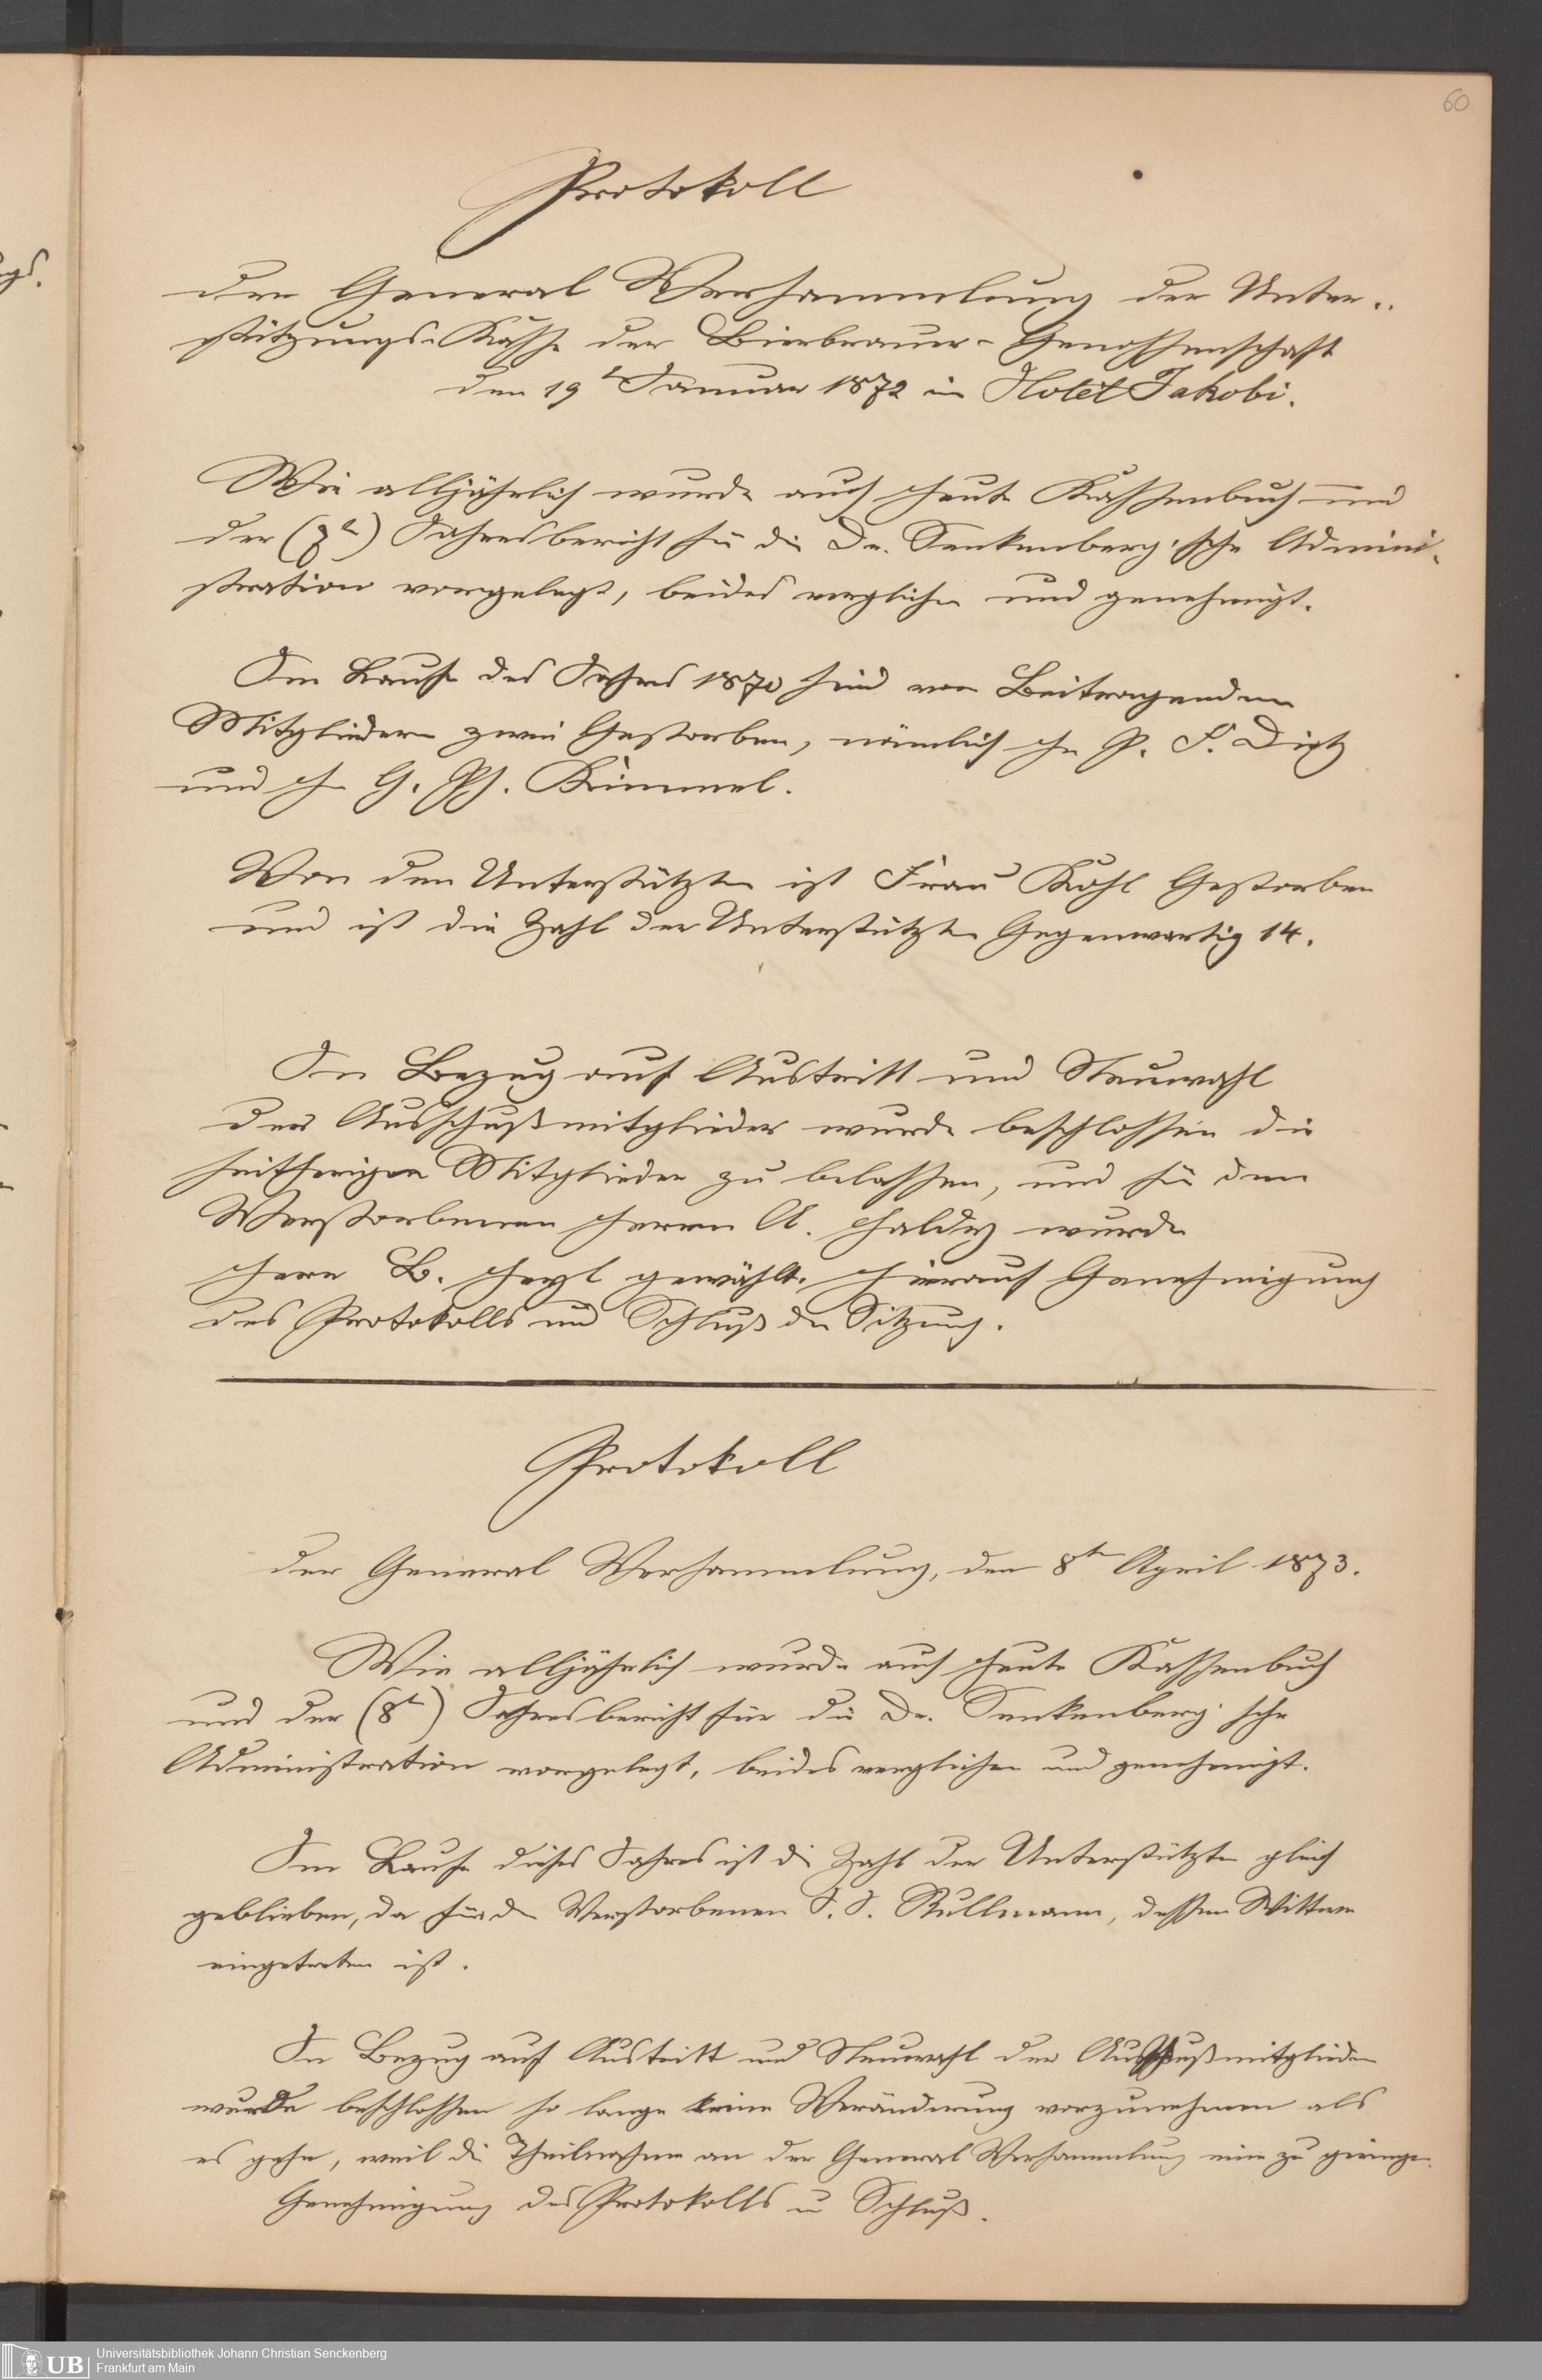 60
Protokoll
der General Versammlung der Unter-
stützungs-Kasse der Bierbrauer-Genossenschaft
den 19t Januar 1872 in Hotel Jakobi.
Wie alljährlich wurde auch heute Kassenbuch und
der (7te) Jahresbericht für die Dr. Senkenberg'sche Admini-
stration vorgelegt, beides verglichen und genehmigt.
Im Laufe des Jahres 1870 sind von Beitragenden
Mitgliedern zwei Gestorben, nämlich Hr P. F. Dietz
und Hr G. Ph. Kimmel.
Von den Unterstützten ist Frau Kohl Gestorben
und ist die Zahl der Unterstützten Gegenwartig 14.
In Bezug auf Austritt und Neuwahl
der Ausschußmitglieder wurde beschlossen die
seitherigen Mitglieder zu belassen, und für den
Verstorbenen Herrn A. Haldy wurde
Herr B. Heyl gewählt. Hierauf Genehmigung
des Protokolls und Schluß der Sitzung.
Protokoll
der General Versammlung, den 8ten April 1873.
Wie alljährlich wurde auch heute Kassenbuch
und der (8te) Jahresbericht für die Dr. Senkenberg'sche
Administration vorgelegt, beides verglichen und genehmigt.
Im Laufe dieses Jahres ist die Zahl der Unterstützten gleich
geblieben, da für den Verstorbenen J. J. Kullmann, dessen Wittwe
eingetreten ist.
In Bezug auf Austritt und Neuwahl der Ausschußmitglieder
wurde beschlossen so lange keine Veränderung vorzunehmen als
es gehe, weil die Theilnahme an der General Versammlung eine zu geringe.
Genehmigung des Protokolls u Schluß.
UB
Universitätsbibliothek Johann Christian Senckenberg
Frankfurt am Main